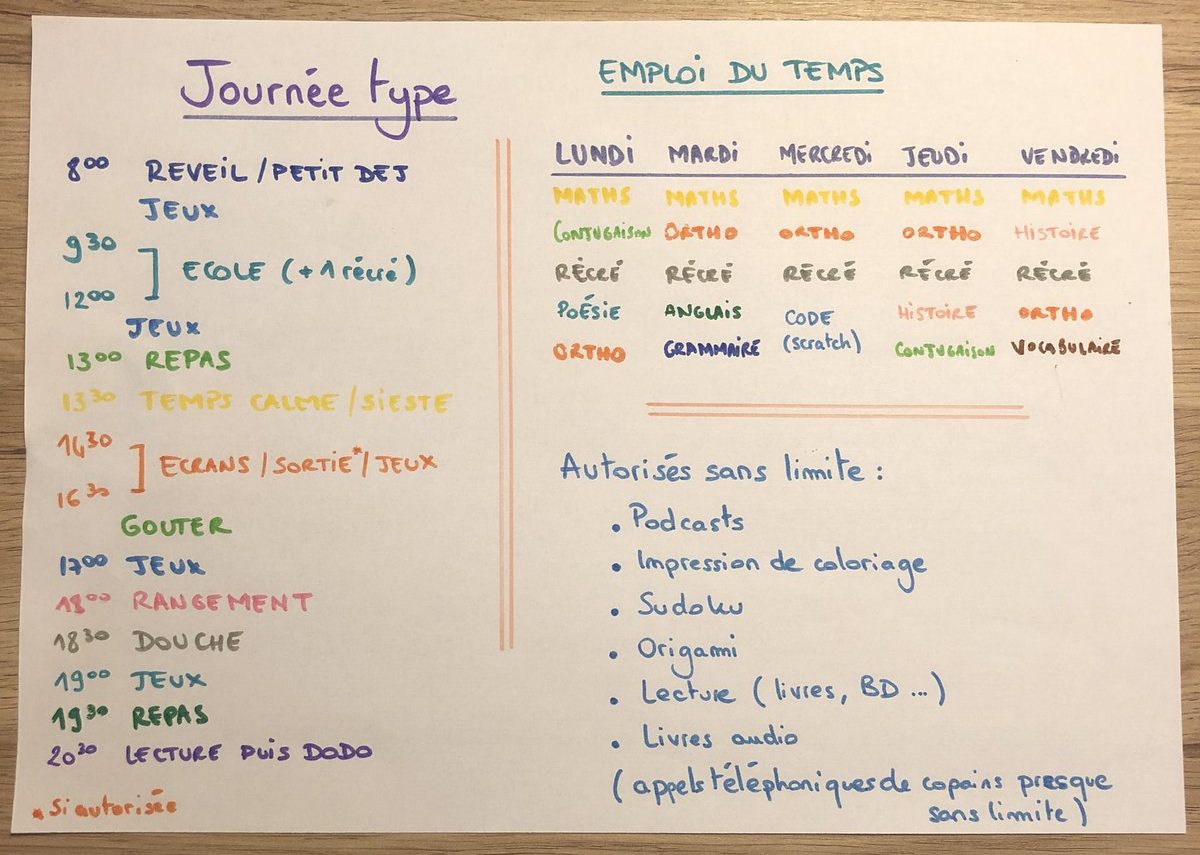 Journée type
8⁰⁰ REVEiL / PETiT DEJ
JEUX
9³⁰
ECOLE (+ 1 récré)
12⁰⁰
JEUX
13⁰⁰ REPAS
13³⁰ TEMPS CALME / SiESTE
14³⁰
ECRANS / SORTiE* / JEUX
16³⁰
GOUTER
17⁰⁰ JEUX
18⁰⁰ RANGEMENT
18³⁰ DOUCHE
19⁰⁰ JEUX
19³⁰ REPAS
20³⁰ LECTURE PUiS DODO
* Si autorisée
EMPLOi DU TEMPS
LUNDi MARDi MERCREDi JEUDi VENDREDi
MATHS MATHS MATHS MATHS MATHS
CONJUGAiSON ORTHO ORTHO ORTHO HiSTOiRE
RÉCRÉ RÉCRÉ RÉCRÉ RÉCRÉ RÉCRÉ
POÉSiE ANGLAiS CODE HiSTOiRE ORTHO
ORTHO GRAMMAiRE (scratch) CONJUGAiSON VOCABULAiRE
Autorisés sans limite :
• Podcasts
• Impression de coloriage
• Sudoku
• Origami
• Lecture ( livres, BD ... )
• Livres audio
( appels téléphoniques de copains presque
sans limite )